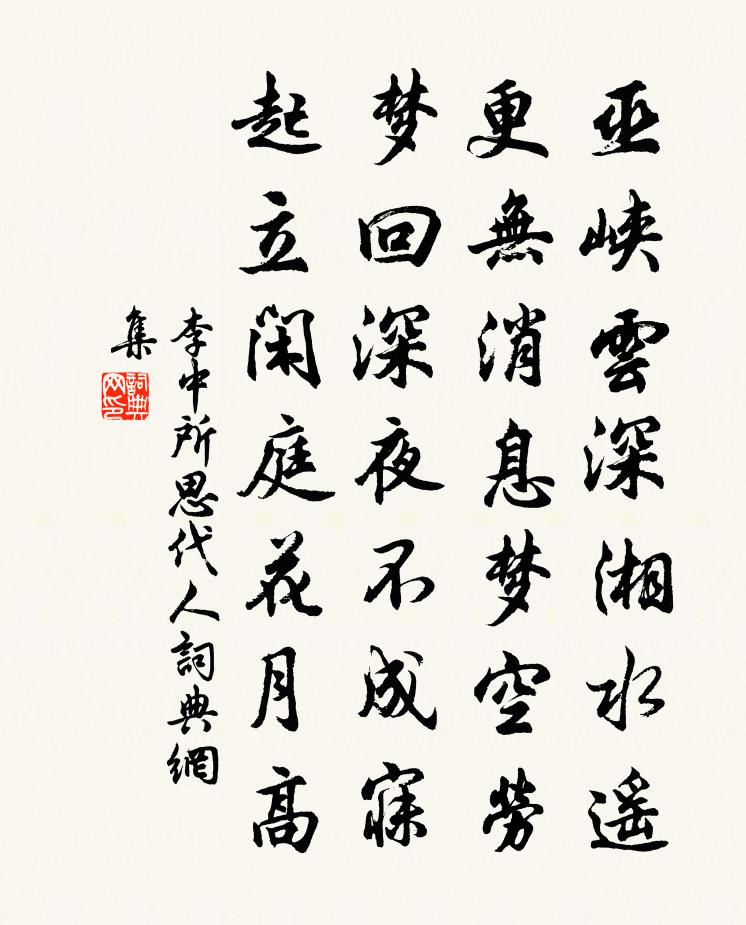 巫峡雲深湘水遥
更無消息梦空勞
梦回深夜不成寐
起立闲庭花月高
李中所思代人詞典網
集
詞典
网印